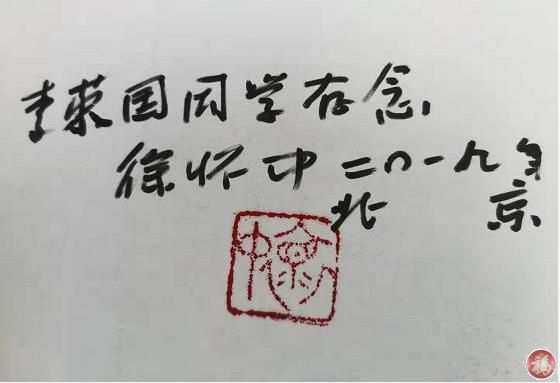 李荣国同学存念,
徐怀中 二〇一九年
北京